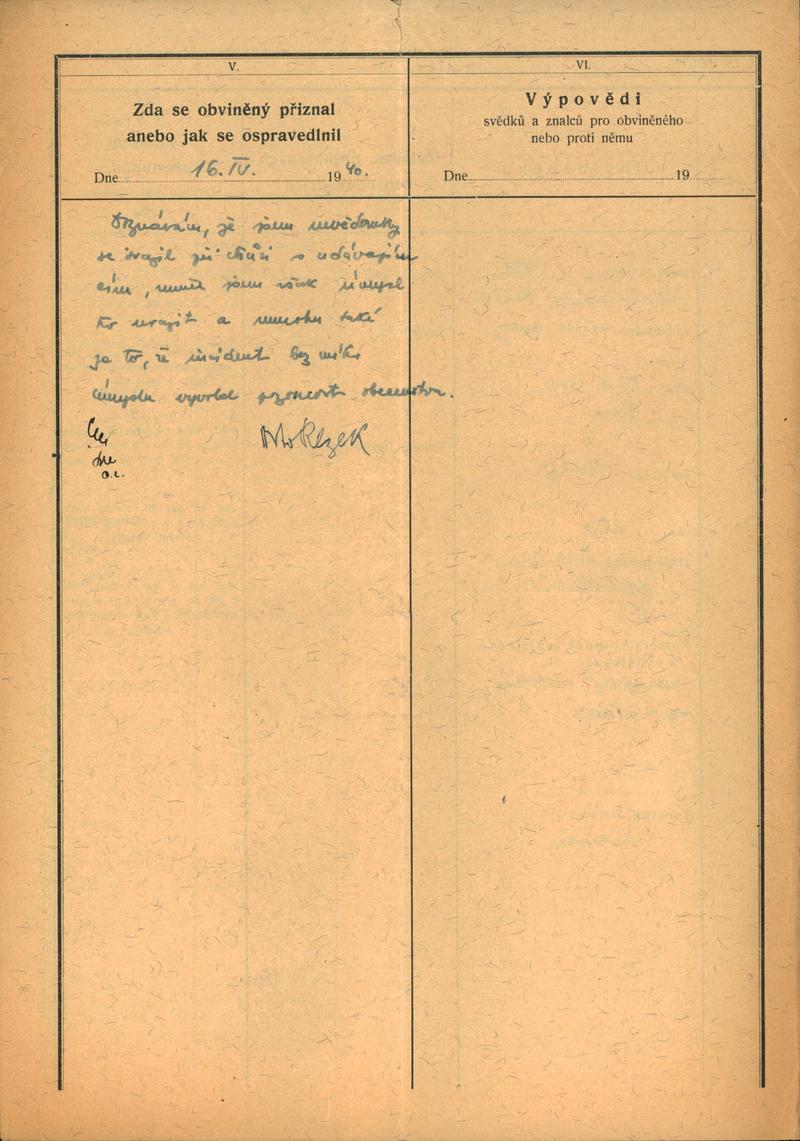 V.
Zda se obviněný přiznal
anebo jak se ospravedlnil
Dne 16. IV. 1940.
VI.
Výpovědi
svědků a znalců pro obviněného
nebo proti němu
Dne 19
, že jsem nevědomky
se srazil při chůzi s udávající
, neměl jsem však úmysl
a nemohu také
za to, že incident bez mého
úmyslu vyvolal pozornost obecenstva.